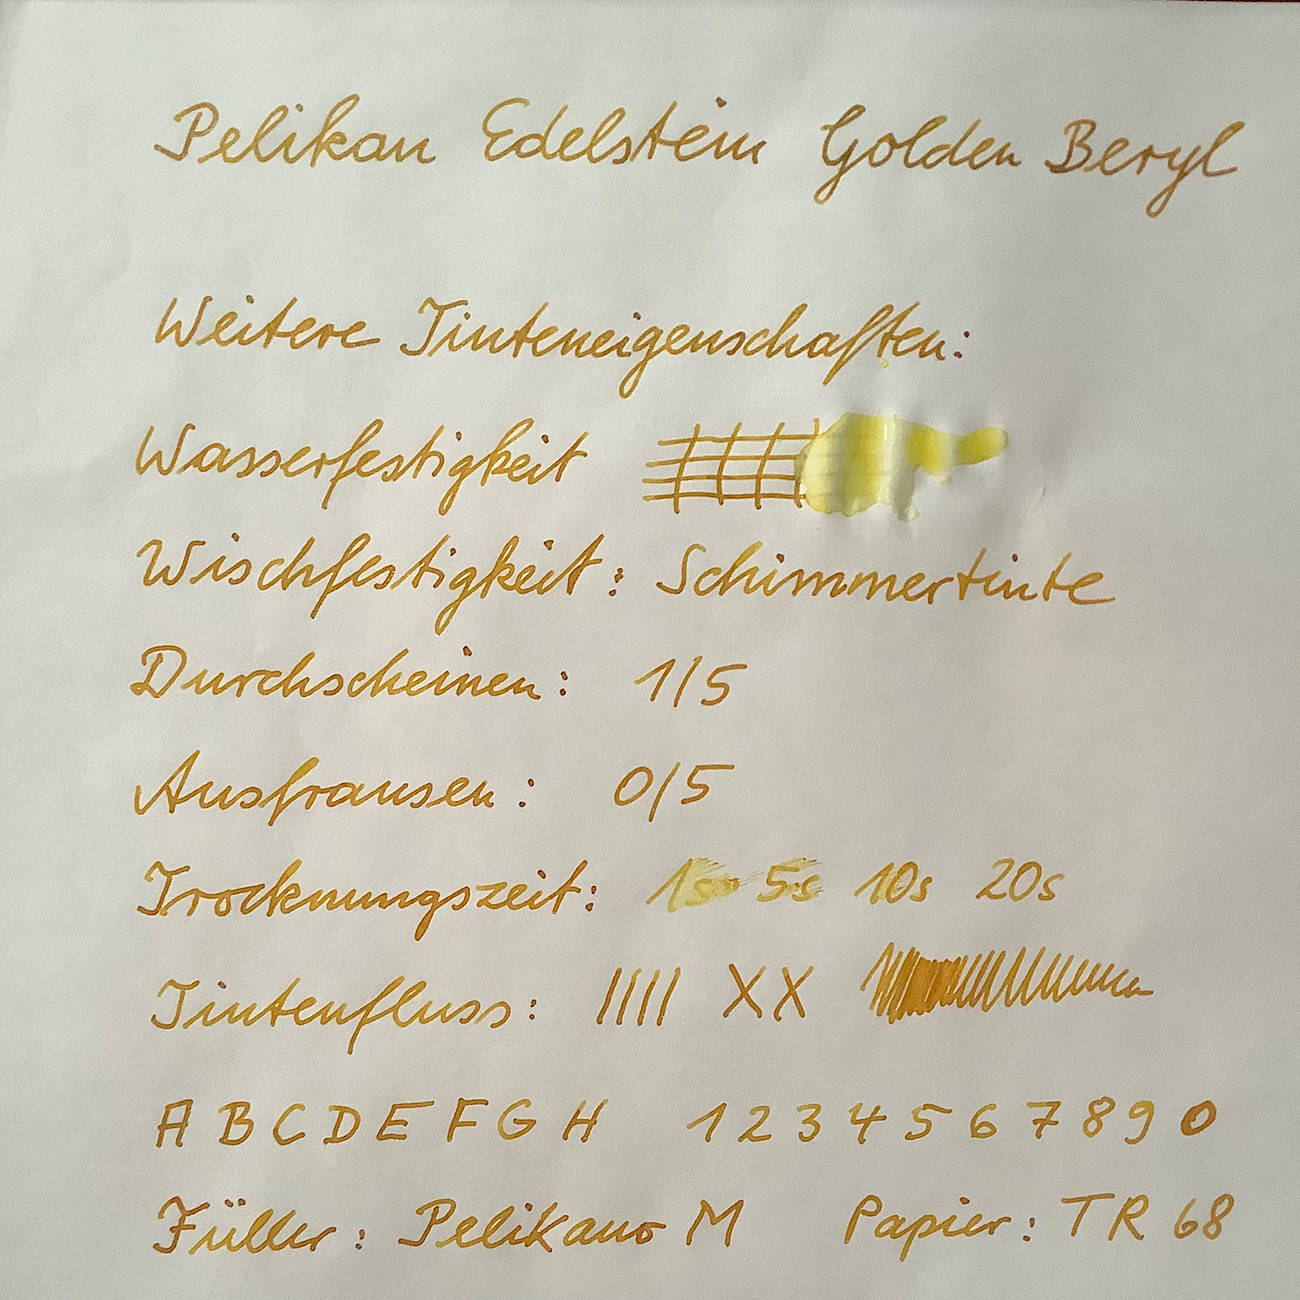 Pelikan Edelstein Golden Beryl
Weitere Tinteneigenschaften:
Wasserfestigkeit
Wischfestigkeit: Schimmertinte
Durchscheinen: 1/5
Ausfransen: 0/5
Trocknungszeit: 1s 5s 10s 20s
Tintenfluss: //// XX
A B C D E F G H 1 2 3 4 5 6 7 8 9 0
Füller: Pelikano M Papier: TR 68